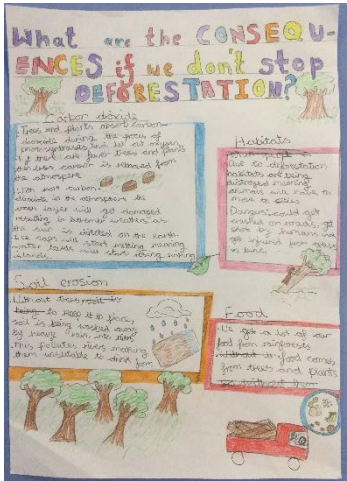 What are the CONSEQU-
ENCES if we don't stop
DEFORESTATION?
Carbon dioxide
Trees and plants absorb carbon
dioxide during the process of
photosynthesis and let out oxygen
if there are fewer trees and plants
less carbon is removed from
the atmosphere
With more carbon
dioxide in the atmosphere the
layer will get damaged
resulting in hotter weather as
the sun is on the earth
Ice caps will start melting meaning
water levels will start rising sinking
islands
Habitats
Due to deforestation
habitats are being
destroyed meaning
animals will have to
move to cities
Danger: could get
crushed on roads, get
shot by humans and
get injured from
Soil erosion
Without trees
to keep it in place,
soil is being washed away
by heavy rain into rivers
this pollutes rivers making
them unsuitable to drink from
Food
We get a lot of our
food from rainforests
food comes
from trees and plants